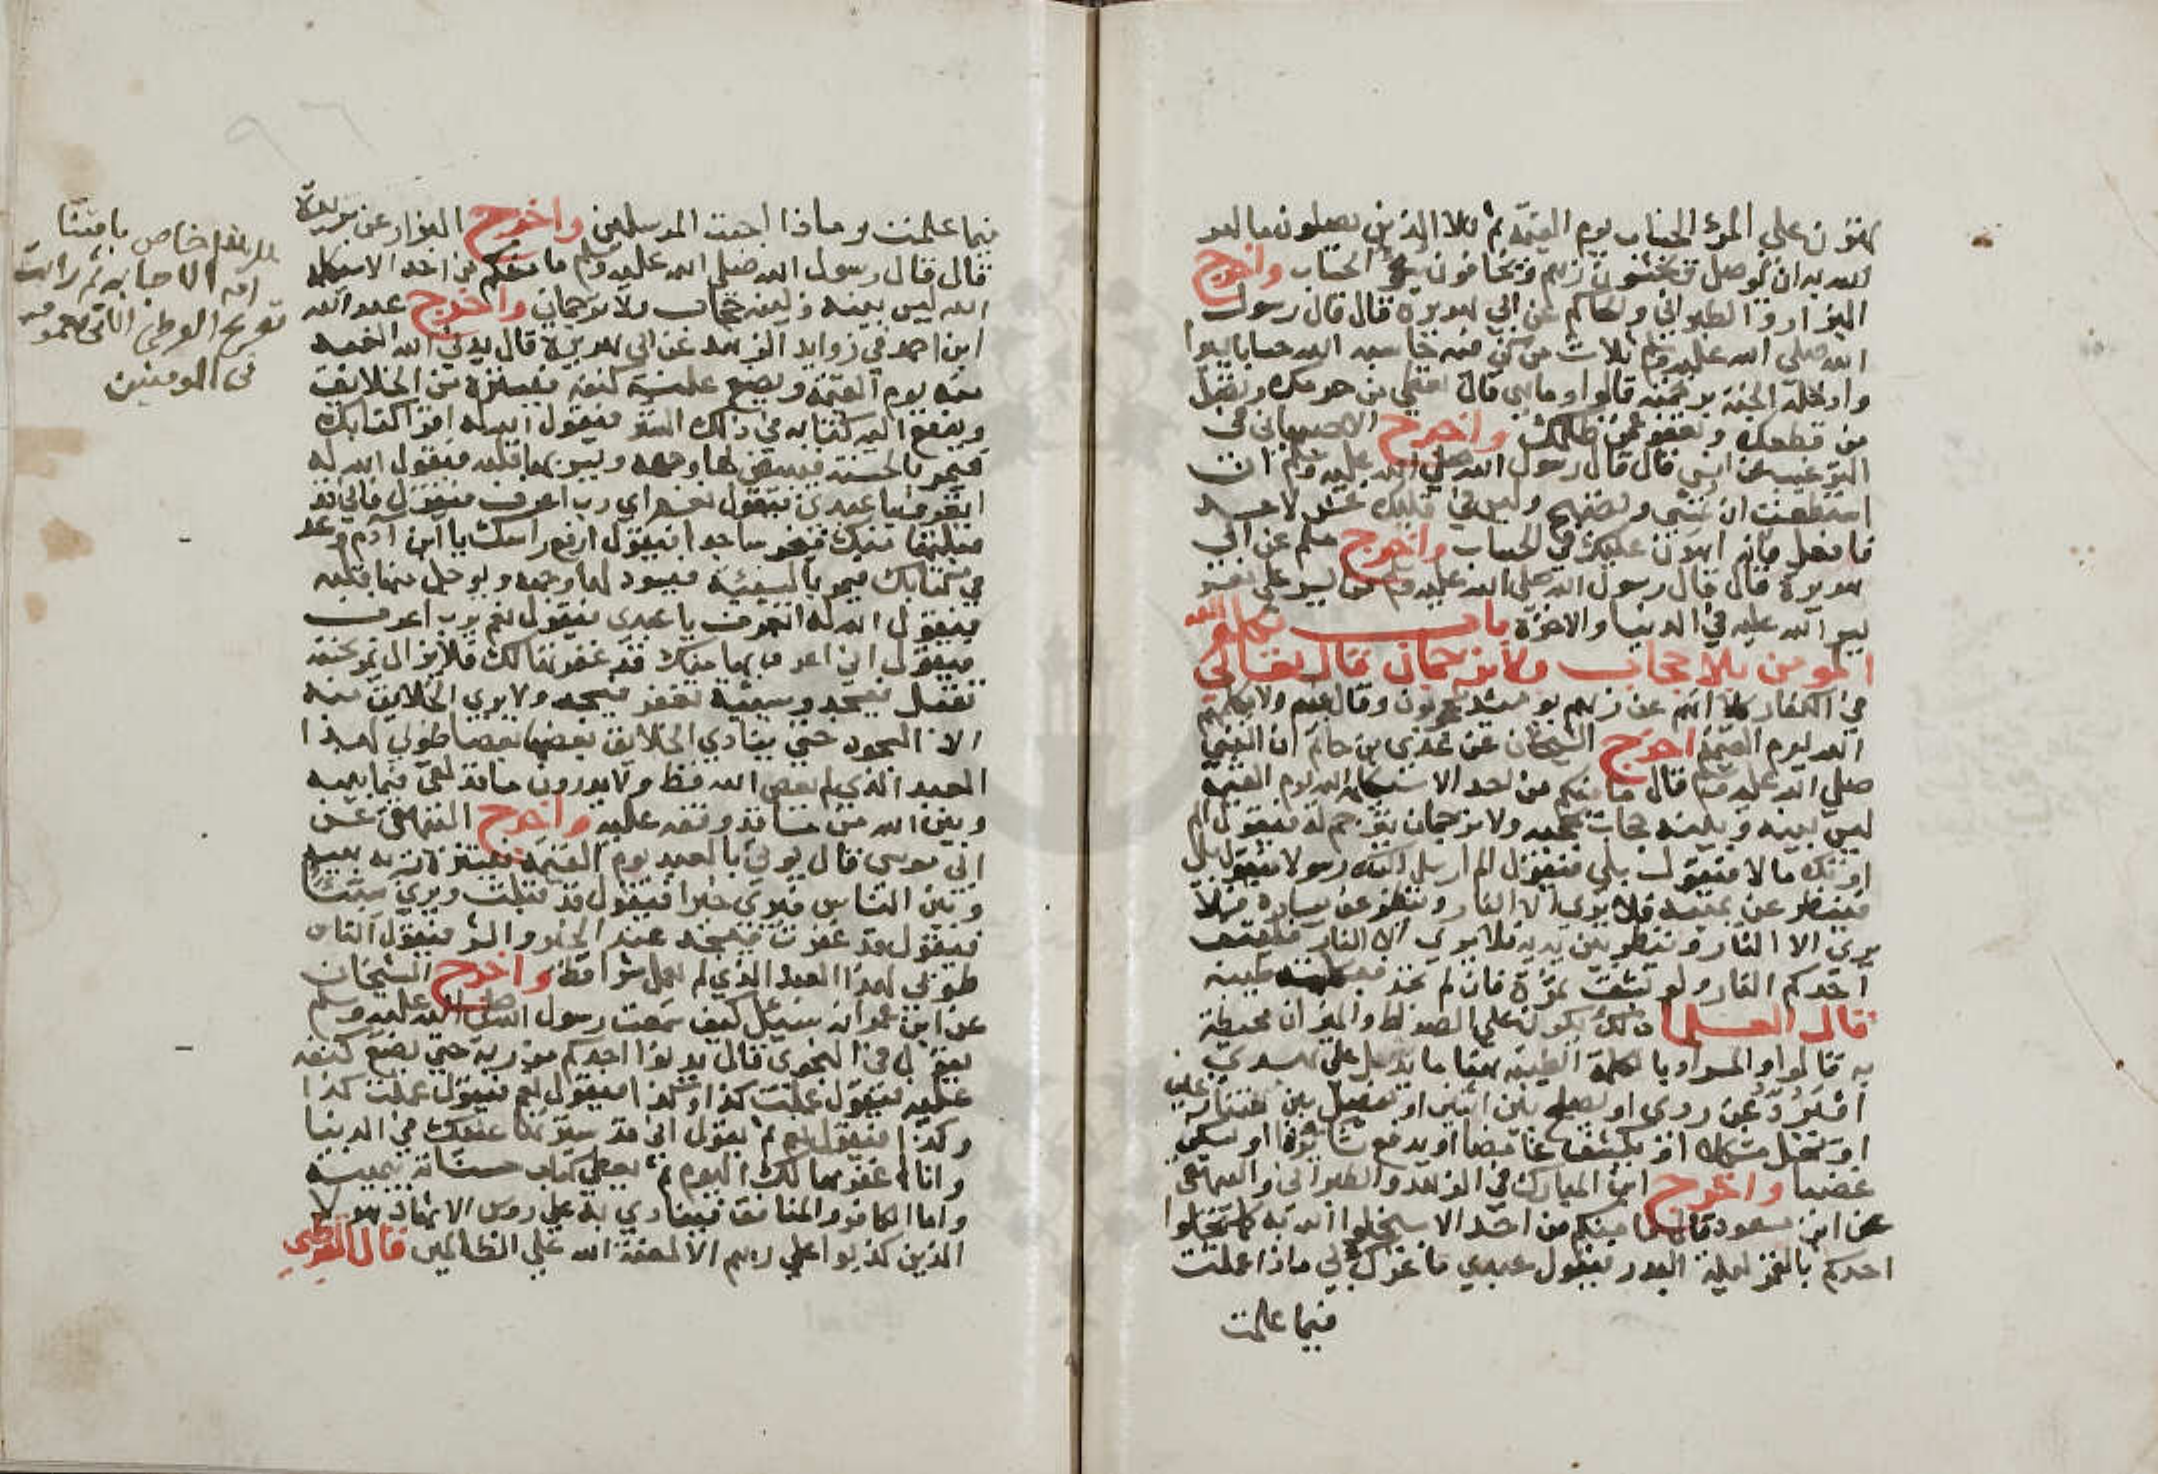 يهون علي المرء الحساب يوم القيمة ثم تلا الذين يصلون ما امر
الله به ان يوصل ويخشون ربهم ويخافون سوء الحساب واخرج
البزار والطبراني والحاكم عن ابي هريرة قال قال رسول
الله صلى الله عليه وسلم ثلاث من كن فيه حاسبه الله حسابا يسيرا
وادخله الجنة برحمته قالوا وما هي قال تعطي من حرمك وتصل
من قطعك وتعفو عمن ظلمك واخرج الاصبهاني في
الترغيب عن انس قال قال رسول الله صلي الله عليه وسلم ان
استطعت ان تمسي وتصبح وليس في قلبك غش لاحد
فافعل فانه اهون عليك في الحساب واخرج مسلم عن ابي
هريرة قال قال رسول الله صلى الله عليه وسلم من يسر على معسر
يسر الله عليه في الدنيا والاخرة باب تكليم الله
المومن بلا حجاب ولا ترجمان قال تعالي
في الكفار كلا انهم عن ربهم يومئذ لمحجوبون وقال فيهم ولا يكلمهم
الله يوم القيمة اخرج الشيخان عن عدي بن حاتم ان النبي
صلي الله عليه وسلم قال ما منكم من احد الا سيكلمه الله يوم القيمة
ليس بينه وبينه حجاب يحجبه ولا ترجمان يترجم له فيقول الم
اوتك مالا فيقول بلي فيقول الم ارسل اليك رسولا فيقول بلى
فينظر عن يمينه فلا يرى الا النار وينظر عن يساره فلا
يرى الا النار وينظر بين يديه فلا يري الا النار فليتق
احدكم النار ولو بشق تمرة فان لم يجد فبكلمة طيبة
قال العلما ذلك يكون على الصراط والميزان محيطة
به قالوا والمراد بالكلمة الطيبة هنا ما يدل على هدي
او يرد عن ردى او يصلح بين اثنين او يفصل بين خصمين
او يحل مشكلا او يكشف غامضا او يدفع ثائرة او يسكن
غضبا واخرج ابن المبارك في الزهد والطبراني والبيهقي
عن ابن مسعود قال ما منكم من احد الا سيخلوا الله به كما يخلوا
احدكم بالقمر ليلة البدر فيقول عبدي ما غرك بي ماذا عملت
فيما علمت
فيما علمت وماذا اجبت المرسلين واخرج البزار عن بريدة
قال قال رسول الله صلى الله عليه وسلم ما منكم من احد الا سيكلمه
الله ليس بينه وبينه حجاب ولا ترجمان واخرج عبد الله
ابن احمد في زوايد الزهد عن ابي هريرة قال يدني الله العبد
منه يوم القيمة ويضع عليه كنفه فيستره من الخلايق
ويدفع اليه كتابه في ذلك الستر فيقول الله له اقرا كتابك
فيمر بالحسنة فيبيض لها وجهه ويسر بها قلبه فيقول الله له
اتعرف يا عبدي فيقول نعم اي رب اعرف فيقول فاني قد
قبلتها منك فيخر ساجدا فيقول ارفع راسك يا ابن آدم وعد
في كتابك فيمر بالسيئة فيسود لها وجهه ويوجل منها قلبه
فيقول الله له اتعرف يا عبدي فيقول نعم يرب اعرف
فيقول اني اعرف بها منك قد غفرتها لك فلا يزال يمر بحسنة
تقبل فيسجد وسيئة تغفر فيسجد ولا يرى الخلايق منه
الا السجود حتى ينادي الخلايق بعضها بعضا طوبي لهذا
العبد الذي لم يعص الله قط ولا يدرون ما قد لقي فيما بينه
وبين الله مما قد وقفه عليه واخرج البيهقي عن
ابي موسى قال يوتي بالعبد يوم القيمة فيستره ربه بينه
وبين الناس فيرى خيرا فيقول قد قبلت ويرى سيئا
فيقول قد غفرت فيسجد عند الخير والشر فيقول الناس
طوبى لهذا العبد الذي لم يعمل شرا قط واخرج الشيخان
عن ابن عمر انه سئل كيف سمعت رسول الله صلى الله عليه وسلم
يقول في النجوى قال يدنوا احدكم من ربه حتى يضع كنفه
عليه فيقول عملت كذا وكذا فيقول نعم فيقول عملت كذا
وكذا فيقول نعم ثم يقول اني قد سترتها عليك في الدنيا
وانا اغفرها لك اليوم ثم يعطي كتاب حسناته بيمينه
واما الكافر والمنافق فينادي به على روس الاشهاد هولا
الذين كذبوا علي ربهم الا لعنة الله علي الظالمين قال القرطبي
خاص بامتنا
الاجابة ثم رايت
القرطبي الاتي
في المومنين